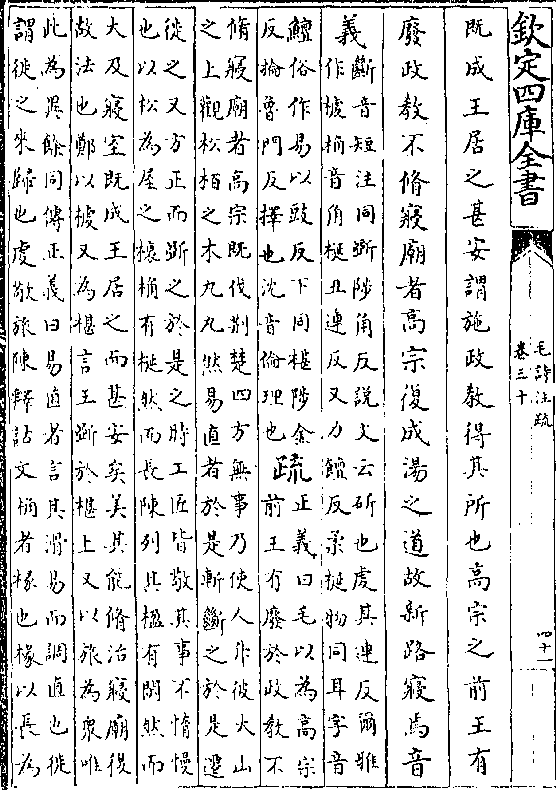 欽定四庫全書
毛詩注疏
卷三十
四十一
既成王居之甚安謂施政教得其所也高宗之前王有
廢政教不脩寢廟者高宗復成湯之道故新路寢焉音
義斷音短注同斲陟角反説文云斫也虔其連反爾雅
作榩桷音角梴丑連反又力鱣反柔梴物同耳字音
鱣俗作易以豉反下同椹陟金
反掄魯門反擇也沈音倫理也
疏正義曰毛以為高宗
前王有廢於政教不
脩寢廟者高宗既伐荆楚四方無事乃使人作彼大山
之上觀松柏之木丸丸然易直者於是斬斷之於是遷
徙之又方正而斲之於是之時工匠皆敬其事不惰慢
也以松為屋之榱桷有梴然而長陳列其楹有閑然而
大及寢室既成王居之而甚安矣美其能脩治寢廟復
故法也鄭以榩又為椹言王斲於椹上又以旅為衆唯
此為異餘同傳正義曰易直者言其滑易而調直也徙
謂徙之來歸也虔敬旅陳釋詁文桷者椽也椽以長為